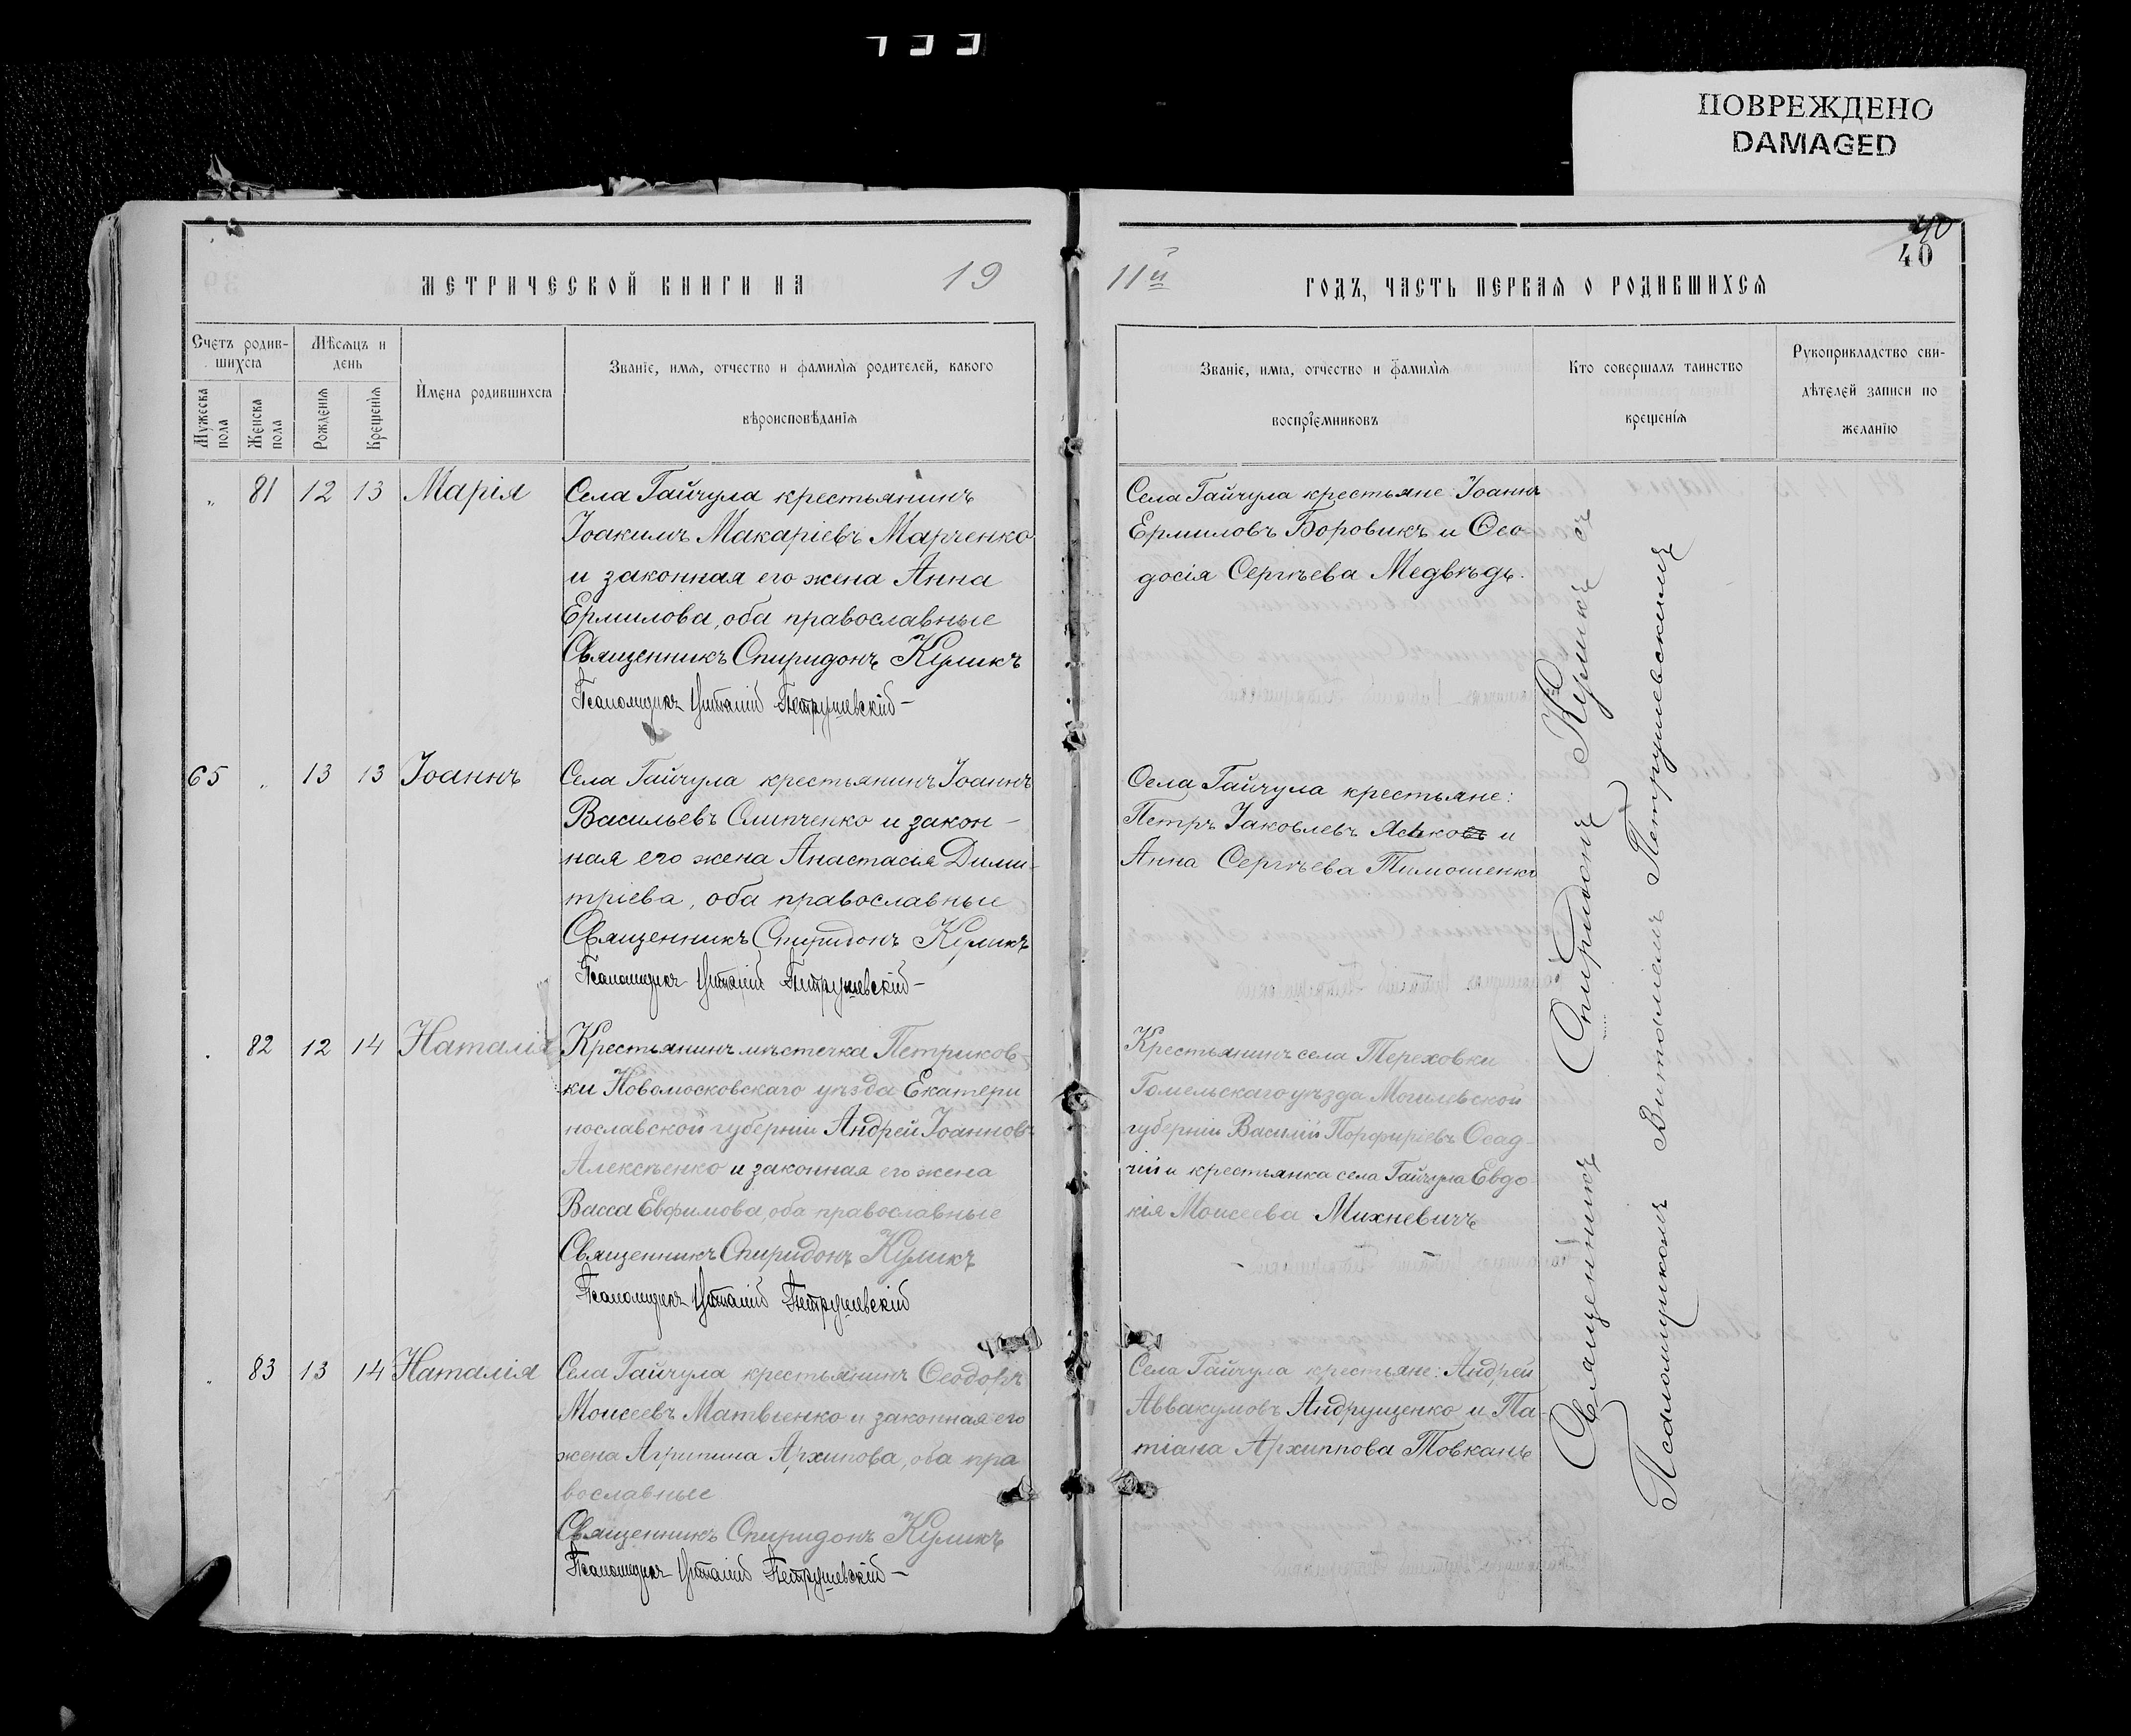 ПОВРЕЖДЕНО
DAMAGED
40
40
МЕТРИЧЕСКОЙ КНИГИ НА 19
11й ГОДЪ, ЧАСТЬ ПЕРВАЯ О РОДИВШИХСЯ
Счетъ родив-
шихся
Мужеска
пола
Женска
пола
Мѣсяцъ и
день
Рожденія
Крещенія
Имена родившихся
Званіе, имя, отчество и фамилія родителей, какого
вѣроисповѣданія
Званіе, имя, отчество и фамилія
воспріемниковъ
Кто совершалъ таинство
крещенія
Рукоприкладство сви-
дѣтелей записи по
желанію
„ 81 12 13 Марія
Села Гайчула крестьянинъ
Іоакимъ Макаріевъ Марченко
и законная его жена Анна
Ермилова, оба православные
Священникъ Спиридонъ Куликъ
Псаломщикъ Виталій Петрушевскій
Села Гайчула крестьяне Іоаннъ
Ермиловъ Боровикъ и Ѳео-
досія Сергѣева Медвѣдь.
65 „ 13 13 Іоаннъ
Села Гайчула крестьянинъ Іоаннъ
Васильевъ Слипченко и закон-
ная его жена Анастасія Дими-
тріева, оба православные
Священникъ Спиридонъ Куликъ
Псаломщикъ Виталій Петрушевскій
Села Гайчула крестьяне:
Петръ Іаковлевъ и
Анна Сергѣева Тимошенко
„ 82 12 14 Наталія
Крестьянинъ мѣстечка Петриков-
ки Новомосковскаго уѣзда Екатери
нославской губерніи Андрей Іоанновъ
Алексѣенко и законная его жена
Васса Евфимова, оба православные
Священникъ Спиридонъ Куликъ
Псаломщикъ Виталій Петрушевскій
Крестьянинъ села Тереховки
Гомельскаго уѣзда Могилевской
губерніи Василій Порфиріевъ Осад-
чій и крестьянка села Гайчула Евдо
кія Моисеева Михневичъ
„ 83 13 14 Наталія
Села Гайчула крестьянинъ Ѳеодоръ
Моисеевъ Матвіенко и законная его
жена Агрипина Архипова, оба пра
вославные
Священникъ Спиридонъ Куликъ
Псаломщикъ Виталій Петрушевскій
Села Гайчула крестьяне: Андрей
Аввакумовъ Андрущенко и Та-
тіана Архиппова Товканъ
Священникъ Спиридонъ Куликъ съ
Псаломщикомъ Виталіемъ Петрушевскимъ